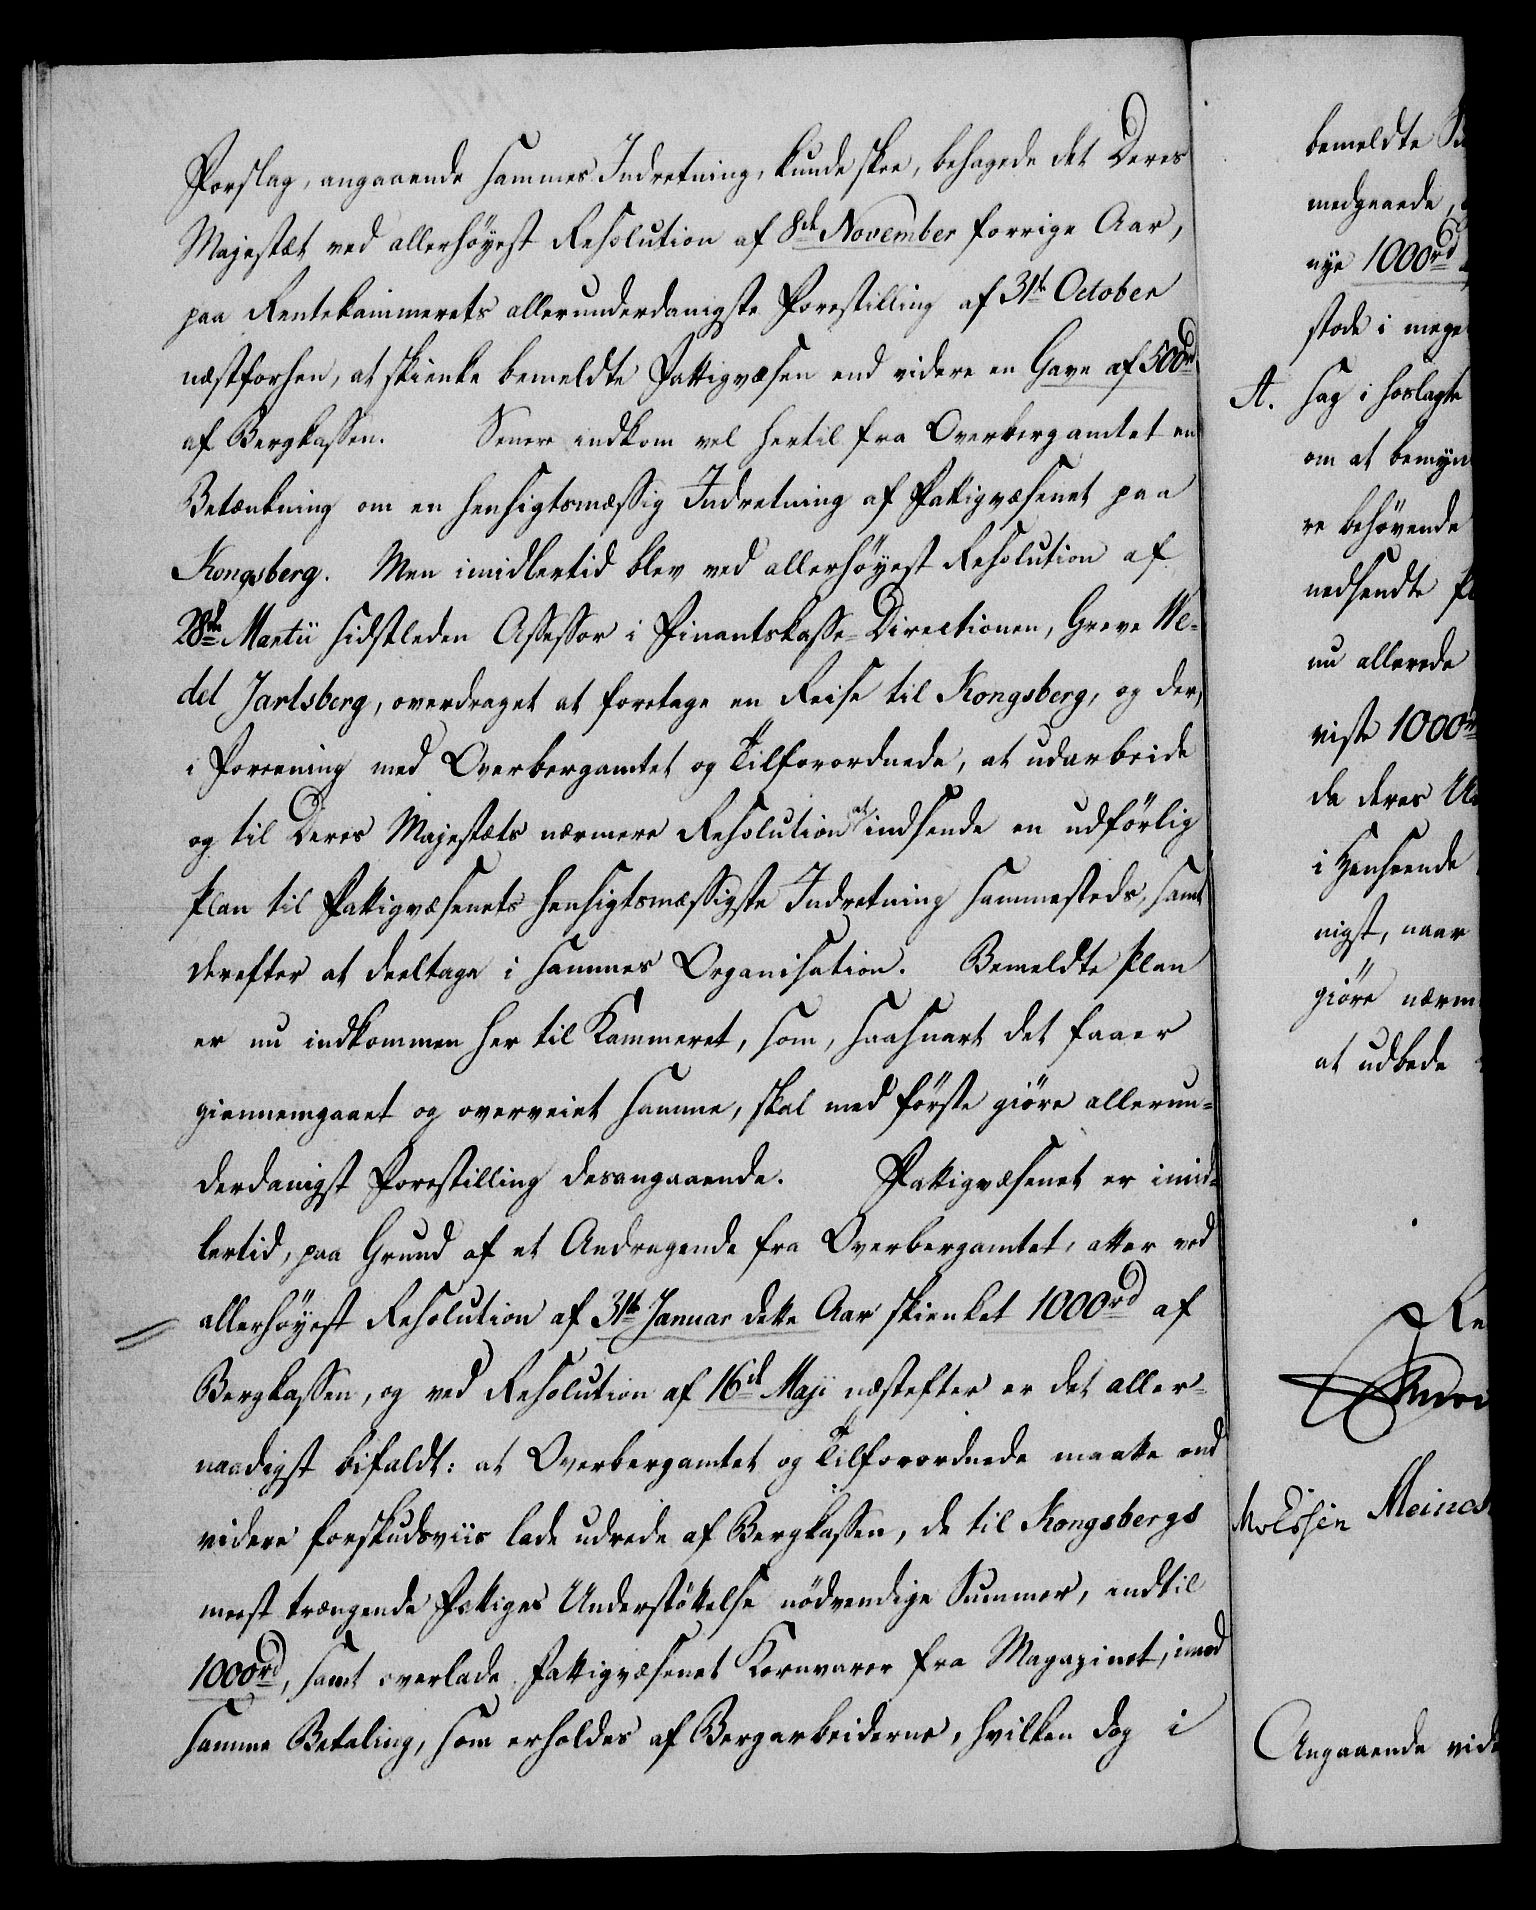 Forslag, angaaende sammes Indretning, kunde skee, behagede det Deres
Majestæt ved allerhöyest Resolution af 8de November forrige Aar,
paa Rentekammerets allerunderdanigste Forestilling af 31te October
næstforhen, at skienke bemeldte Fattigvæsen end videre en Gave af 500rd
af Bergkassen. Senere indkom vel hertil fra Overbergamtet en
Betænkning om en hensigtsmæssig Indretning af Fattigvæsenet paa
Kongsberg. Men imidlertid blev ved allerhöyest Resolution af
28de Martii sidstleden Assessor i Finantskasse-Directionen, Greve We-
del Jarlsberg, overdraget at foretage en Reise til Kongsberg, og der,
i Forening med Overbergamtet og Tilforordnede, at udarbeide
og til Deres Majestæts nærmere Resolution at indsende en udförlig
Plan til Fattigvæsenets hensigtsmæssigste Indretning sammesteds, samt
derefter at deeltage i sammes Organisation. Bemeldte Plan
er nu indkommen her til Kammeret, som, saasnart det faaer
giennemgaaet og overveiet samme, skal med förste giöre allerun-
derdanigst Forestilling desangaaende. Fattigvæsenet er imid-
lertid, paa Grund af et Andragende fra Overbergamtet, atter ved
allerhöyest Resolution af 31te Januar dette Aar skienket 1000rd af
Bergkassen, og ved Resolution af 16de Maji næstefter er det aller-
naadigst bifaldt: at Overbergamtet og Tilforordnede maatte end
videre forskudsviis lade udrede af Bergkassen, de til Kongsbergs
meest trængende Fattiges Understöttelse nödvendige Summer, indtil
1000rd, samt overlade Fattigvæsenet Kornvarer fra Magazinet, imod
samme Betaling, som erholdes af Bergarbeiderne, hvilken dog i
bemeldte
medgaaede,
nye 1000rd
stode i
A. sag i hoslagte
om at
re behövende
nedsendte
nu allerede
viste 1000rd
da deres
i Henseende
nigst, naar
giöre
at udbede
Angaaende